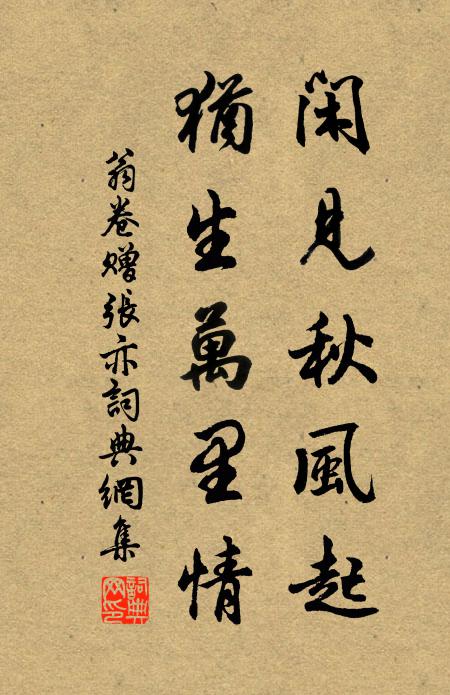 閑見秋風起
猶生萬里情
翁卷贈張亦詞典網集
詞典网印